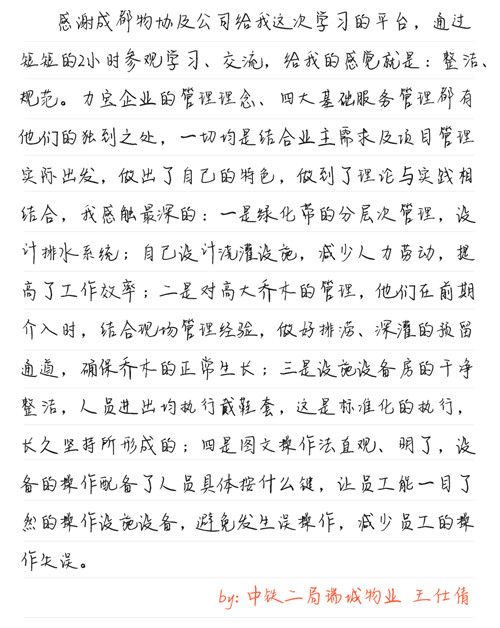 感谢成都物协及公司给我这次学习的平台，通过
短短的2小时参观学习、交流，给我的感觉就是：整洁、
规范。力宝企业的管理理念、四大基础服务管理都有
他们的独到之处，一切均是结合业主需求及项目管理
实际出发，做出了自己的特色，做到了理论与实践相
结合，我感触最深的：一是绿化带的分层次管理，设
计排水系统；自己设计浇灌设施，减少人力劳动，提
高了工作效率；二是对高大乔木的管理，他们在前期
介入时，结合现场管理经验，做好排涝、深灌的预留
通道，确保乔木的正常生长；三是设施设备房的干净
整洁，人员进出均执行戴鞋套，这是标准化的执行，
长久坚持所形成的；四是图文操作法直观、明了，设
备的操作配备了人员具体按什么键，让员工能一目了
然的操作设施设备，避免发生误操作，减少员工的操
作失误。
by: 中铁二局瑞城物业 王仕倩